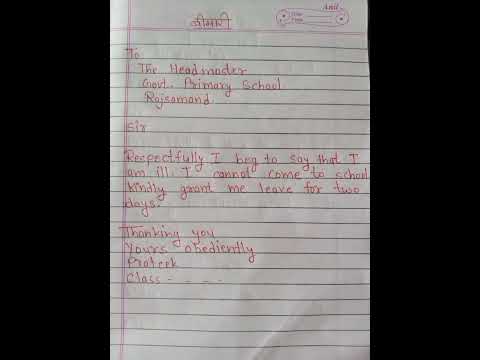 बीमारी
Anil
To
The Headmaster
Govt. Primary School
Rajsamand
Sir
Respectfully I beg to say that I
am ill. I cannot come to school
kindly grant me leave for two
days.
Thanking you
Yours obediently
Prateek
Class - - - - -